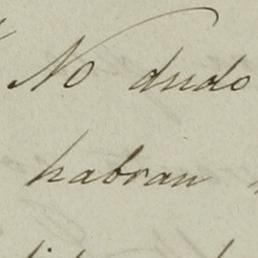 No dudo
habran